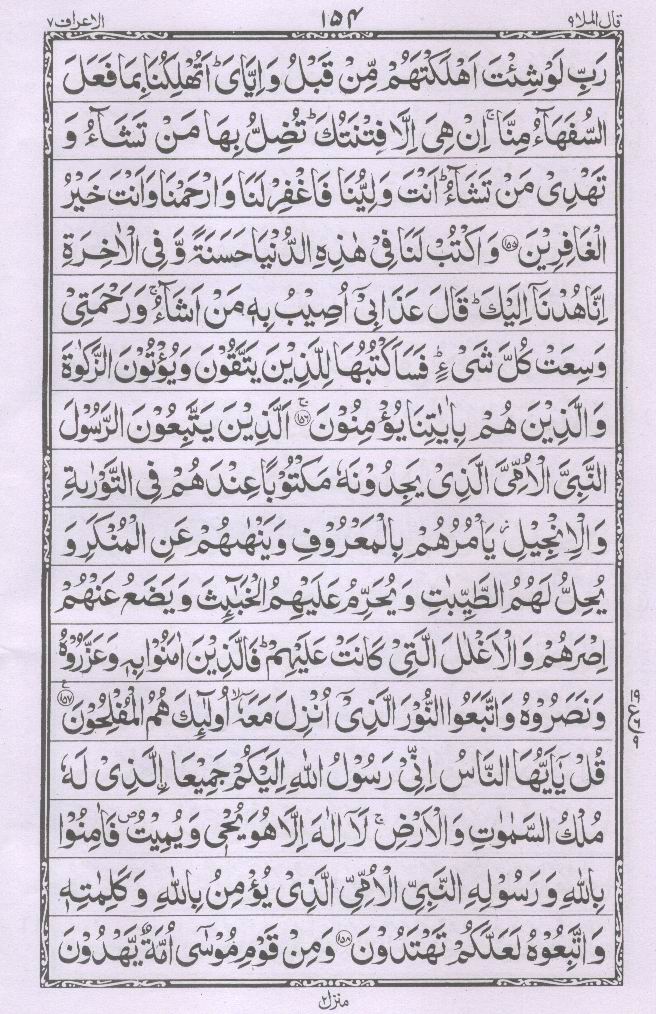 قال الملا ٩ ١٥٤ الاعراف ٧
رَبِّ لَوْ شِئْتَ اَهْلَكْتَهُمْ مِّنْ قَبْلُ وَ اِيَّايَ ؕ اَتُهْلِكُنَا بِمَا فَعَلَ
السُّفَهَآءُ مِنَّا ۚ اِنْ هِيَ اِلَّا فِتْنَتُكَ ؕ تُضِلُّ بِهَا مَنْ تَشَآءُ وَ
تَهْدِيْ مَنْ تَشَآءُ ؕ اَنْتَ وَلِيُّنَا فَاغْفِرْ لَنَا وَ ارْحَمْنَا وَ اَنْتَ خَيْرُ
الْغَافِرِيْنَ ١٥٥ وَ اكْتُبْ لَنَا فِيْ هٰذِهِ الدُّنْيَا حَسَنَةً وَّ فِي الْاٰخِرَةِ
اِنَّا هُدْنَاۤ اِلَيْكَ ؕ قَالَ عَذَابِيْۤ اُصِيْبُ بِهٖ مَنْ اَشَآءُ ۚ وَ رَحْمَتِيْ
وَسِعَتْ كُلَّ شَيْءٍ ؕ فَسَاَكْتُبُهَا لِلَّذِيْنَ يَتَّقُوْنَ وَ يُؤْتُوْنَ الزَّكٰوةَ
وَ الَّذِيْنَ هُمْ بِاٰيٰتِنَا يُؤْمِنُوْنَ ١٥٦ ۚ اَلَّذِيْنَ يَتَّبِعُوْنَ الرَّسُوْلَ
النَّبِيَّ الْاُمِّيَّ الَّذِيْ يَجِدُوْنَهٗ مَكْتُوْبًا عِنْدَهُمْ فِي التَّوْرٰىةِ
وَ الْاِنْجِيْلِ ز يَاْمُرُهُمْ بِالْمَعْرُوْفِ وَ يَنْهٰىهُمْ عَنِ الْمُنْكَرِ وَ
يُحِلُّ لَهُمُ الطَّيِّبٰتِ وَ يُحَرِّمُ عَلَيْهِمُ الْخَبٰٓئِثَ وَ يَضَعُ عَنْهُمْ
اِصْرَهُمْ وَ الْاَغْلٰلَ الَّتِيْ كَانَتْ عَلَيْهِمْ ؕ فَالَّذِيْنَ اٰمَنُوْا بِهٖ وَ عَزَّرُوْهُ
وَ نَصَرُوْهُ وَ اتَّبَعُوا النُّوْرَ الَّذِيْۤ اُنْزِلَ مَعَهٗۤ ۙ اُولٰٓئِكَ هُمُ الْمُفْلِحُوْنَ ١٥٧ ع
قُلْ يٰۤاَيُّهَا النَّاسُ اِنِّيْ رَسُوْلُ اللّٰهِ اِلَيْكُمْ جَمِيْعَا اِ۟لَّذِيْ لَهٗ
مُلْكُ السَّمٰوٰتِ وَ الْاَرْضِ ۚ لَاۤ اِلٰهَ اِلَّا هُوَ يُحْيٖ وَ يُمِيْتُ ص فَاٰمِنُوْا
بِاللّٰهِ وَ رَسُوْلِهِ النَّبِيِّ الْاُمِّيِّ الَّذِيْ يُؤْمِنُ بِاللّٰهِ وَ كَلِمٰتِهٖ
وَ اتَّبِعُوْهُ لَعَلَّكُمْ تَهْتَدُوْنَ ١٥٨ وَ مِنْ قَوْمِ مُوْسٰۤى اُمَّةٌ يَّهْدُوْنَ
منزل ٢